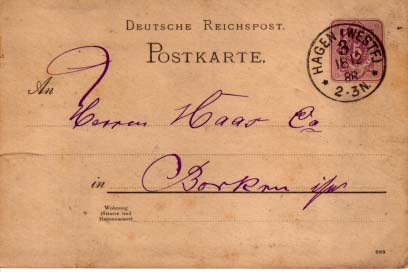 DEUTSCHE REICHSPOST.
POSTKARTE.
HAGEN (WESTF)
3
18 12
88
* 2-3N. *
An
Herren Haas Co
in Borken i/w
Wohnung
(Strasse und
Hausnummer)